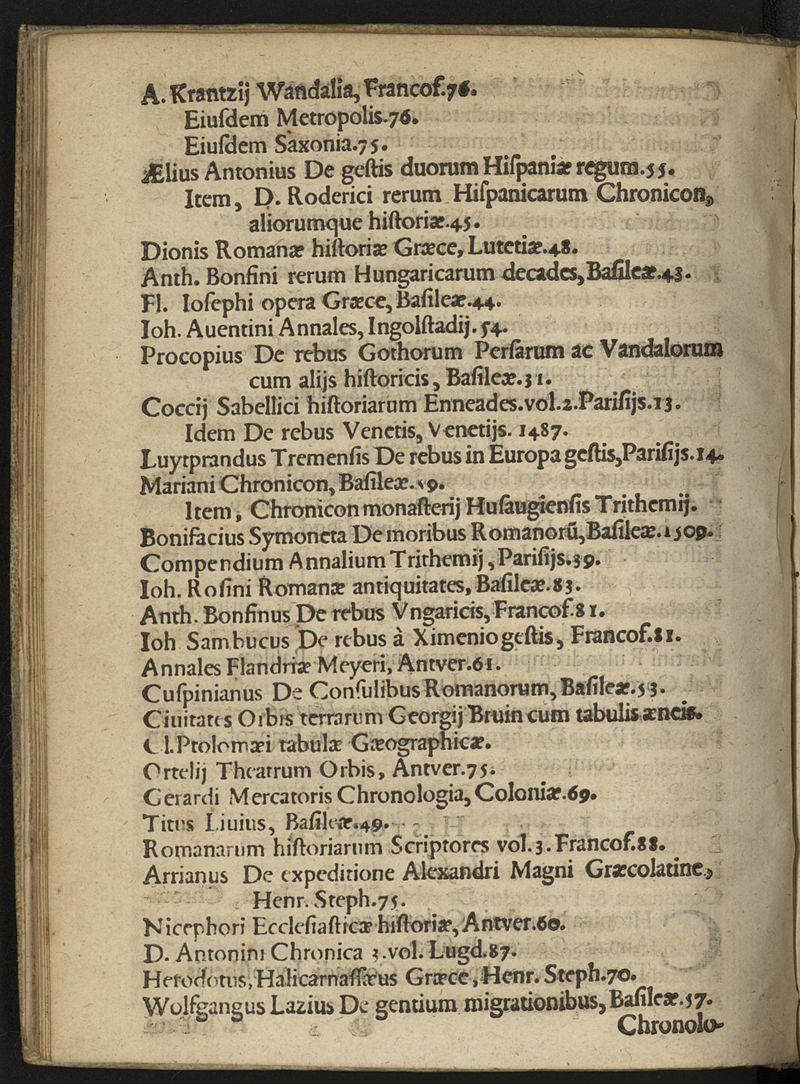 A. Krantzij Wandalia, Francof.76.
Eiuſdem Metropolis.76.
Eiuſdem Saxonia.75.
Ælius Antonius De geſtis duorum Hiſpaniæ regum.55.
Item, D. Roderici rerum Hiſpanicarum Chronicon,
aliorumque hiſtoriæ.45.
Dionis Romanæ hiſtoriæ Græce, Lutetiæ.48.
Anth. Bonfini rerum Hungaricarum decades, Baſileæ.43.
Fl. Ioſephi opera Græce, Baſileæ.44.
Ioh. Auentini Annales, Ingolſtadij.54.
Procopius De rebus Gothorum Perſarum ac Vandalorum
cum alijs hiſtoricis, Baſileæ.31.
Coccij Sabellici hiſtoriarum Enneades.vol.2.Pariſijs.13.
Idem De rebus Venetis, Venetijs. 1487.
Luytprandus Tremenſis De rebus in Europa geſtis, Pariſijs.14.
Mariani Chronicon, Baſileæ.59.
Item, Chronicon monaſterij Huſaugienſis Trithemij.
Bonifacius Symoneta De moribus Romanorũ, Baſileæ.1509.
Compendium Annalium Trithemij, Pariſijs.39.
Ioh. Roſini Romanæ antiquitates, Baſileæ.83.
Anth. Bonfinus De rebus Vngaricis, Francof.81.
Ioh Sambucus De rebus à Ximenio geſtis, Francof.81.
Annales Flandriæ Meyeri, Antver.61.
Cuſpinianus De Conſulibus Romanorum, Baſileæ.53.
Ciuitates Orbis terrarum Georgij Bruin cum tabulis æneis.
Cl.Ptolomæi tabulæ Gæographicæ.
Ortelij Theatrum Orbis, Antver.75.
Gerardi Mercatoris Chronologia, Coloniæ.69.
Titus Liuius, Baſileæ.49.
Romanarum hiſtoriarum Scriptores vol.3.Francof.88.
Arrianus De expeditione Alexandri Magni Græcolatine,
Henr. Steph.75.
Nicephori Eccleſiaſticæ hiſtoriæ, Antver.60.
D. Antonini Chronica 3.vol. Lugd.87.
Herodotus, Halicarnaſſæus Græce, Henr. Steph.70.
Wolfgangus Lazius De gentium migrationibus, Baſileæ.57.
Chronolo-